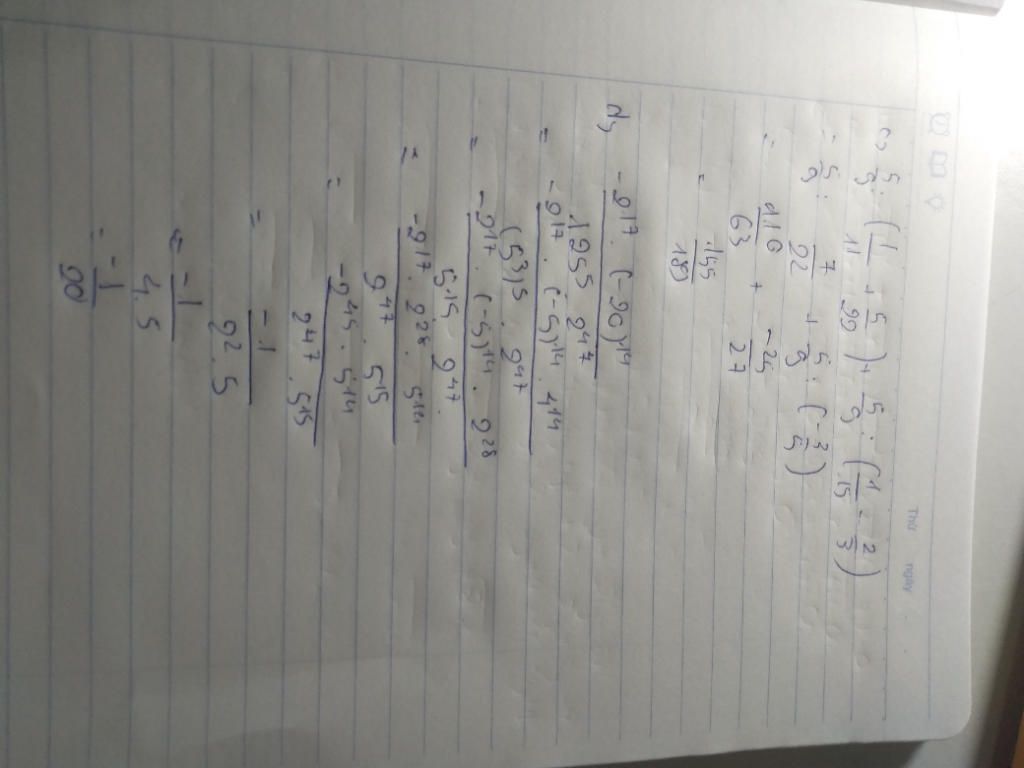 Thứ ngày
c) 5/9 : (1/11 + 5/22) + 5/9 : (1/15 - 2/3)
= 5/9 : 7/22 + 5/9 : (-3/5)
= 110/63 + -25/27
= 155/189
d, -2¹⁷ . (-20)¹⁴ / 125⁵ 2⁴⁷
= -2¹⁷ . (-5)¹⁴ . 4¹⁴ / (5³)⁵ . 2⁴⁷
= -2¹⁷ . (-5)¹⁴ . 2²⁸ / 5¹⁵ . 2⁴⁷
= -2¹⁷ . 2²⁸ . 5¹⁴ / 2⁴⁷ . 5¹⁵
= -2⁴⁵ . 5¹⁴ / 2⁴⁷ . 5¹⁵
= -1 / 2² . 5
= -1 / 4.5
= -1/20